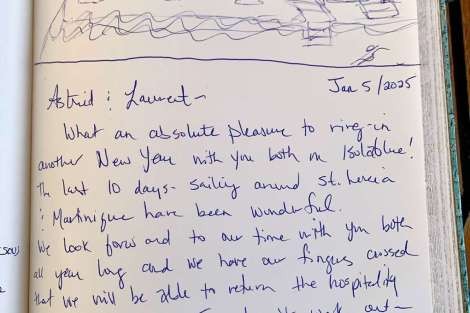 Jan 5/2025
Astrid & Laurent –
What an absolute pleasure to ring-in
another New Year with you both on Isolablue!
The last 10 days - sailing around St. Lucia
& Martinique have been wonderful.
We look forward to our time with you both
all year long and we have our fingers crossed
that we will be able to return the hospitality
out –